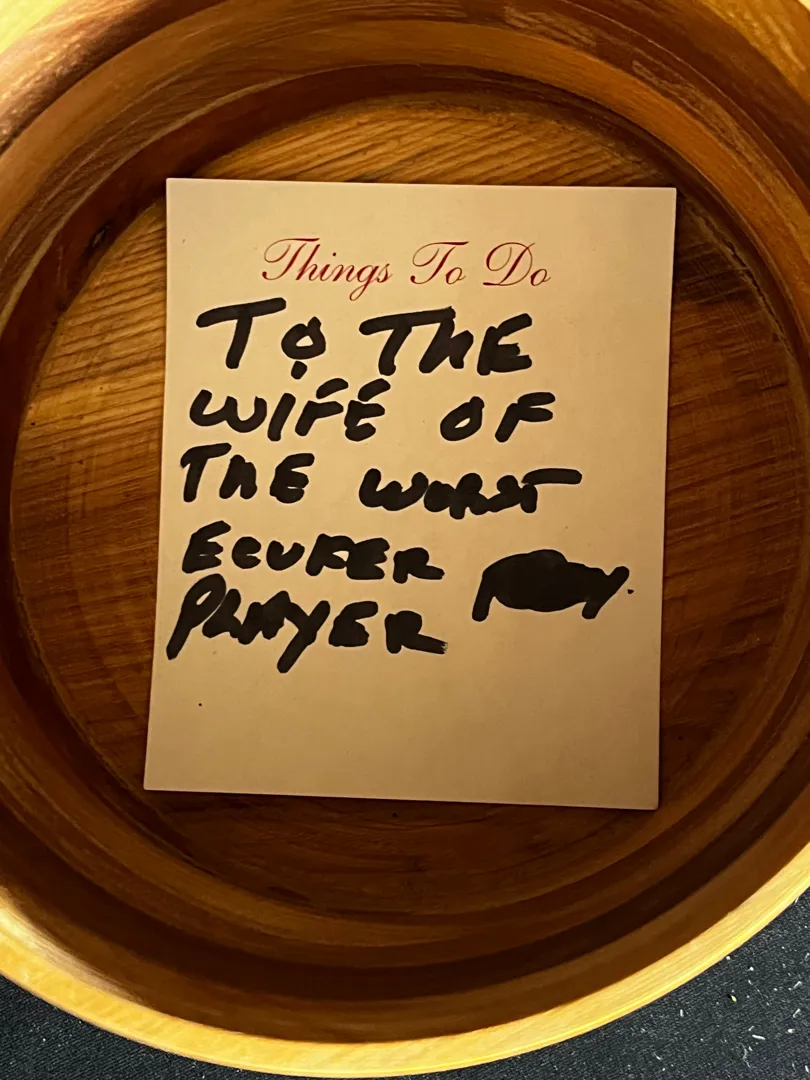 Things To Do
TO THE
WIFE OF
THE WORST
ECUKER
PLAYER